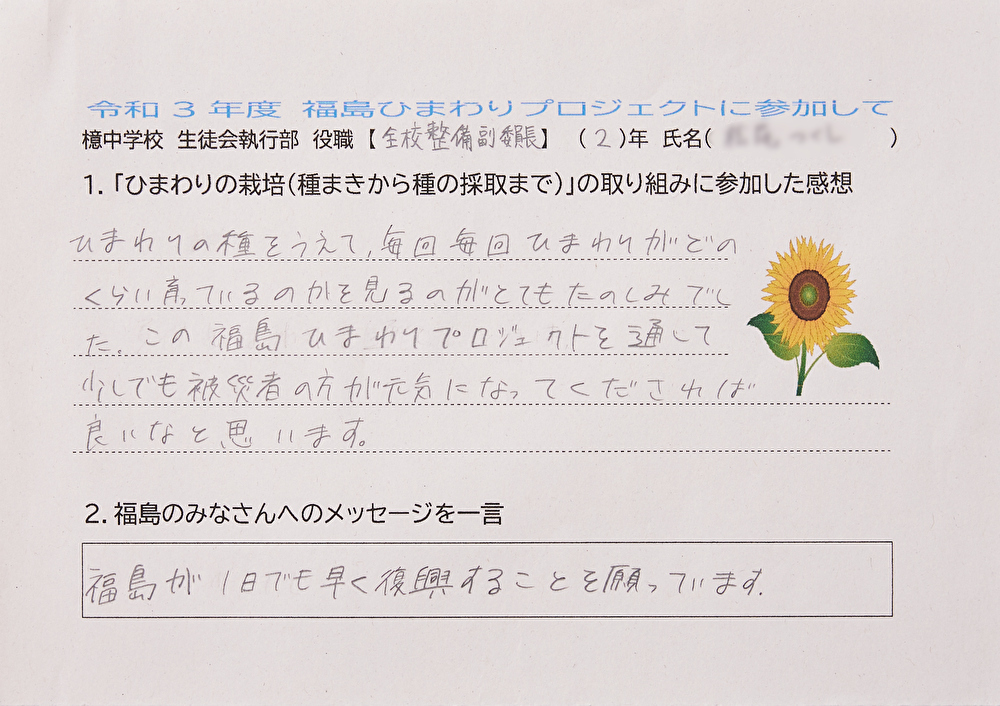 令和3年度 福島ひまわりプロジェクトに参加して
檍中学校 生徒会執行部 役職【全校整備副委員長】 (2)年 氏名( )
1.「ひまわりの栽培(種まきから種の採取まで)」の取り組みに参加した感想
ひまわりの種をうえて、毎回毎回ひまわりがどの
くらい育っているのかを見るのがとてもたのしみでし
た。この福島ひまわりプロジェクトを通して
少しでも被災者の方が元気になってくだされば
良いなと思います。
2.福島のみなさんへのメッセージを一言
福島が1日でも早く復興することを願っています。